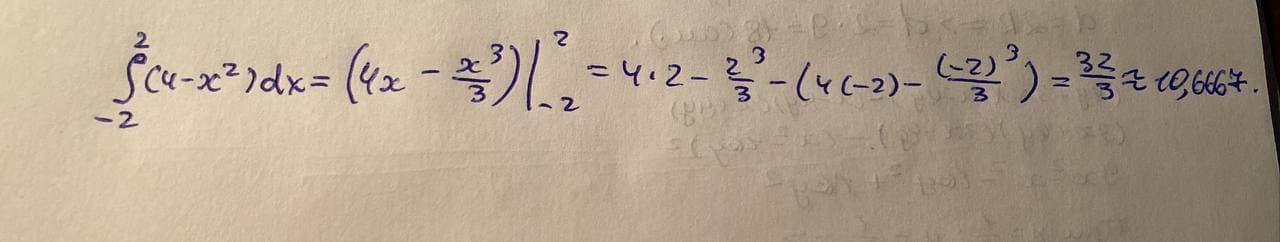 ∫₋₂² (4-x²)dx = (4x - x³/3)|₋₂² = 4·2 - 2³/3 - (4(-2) - (-2)³/3) = 32/3 ≈ 10,6667.